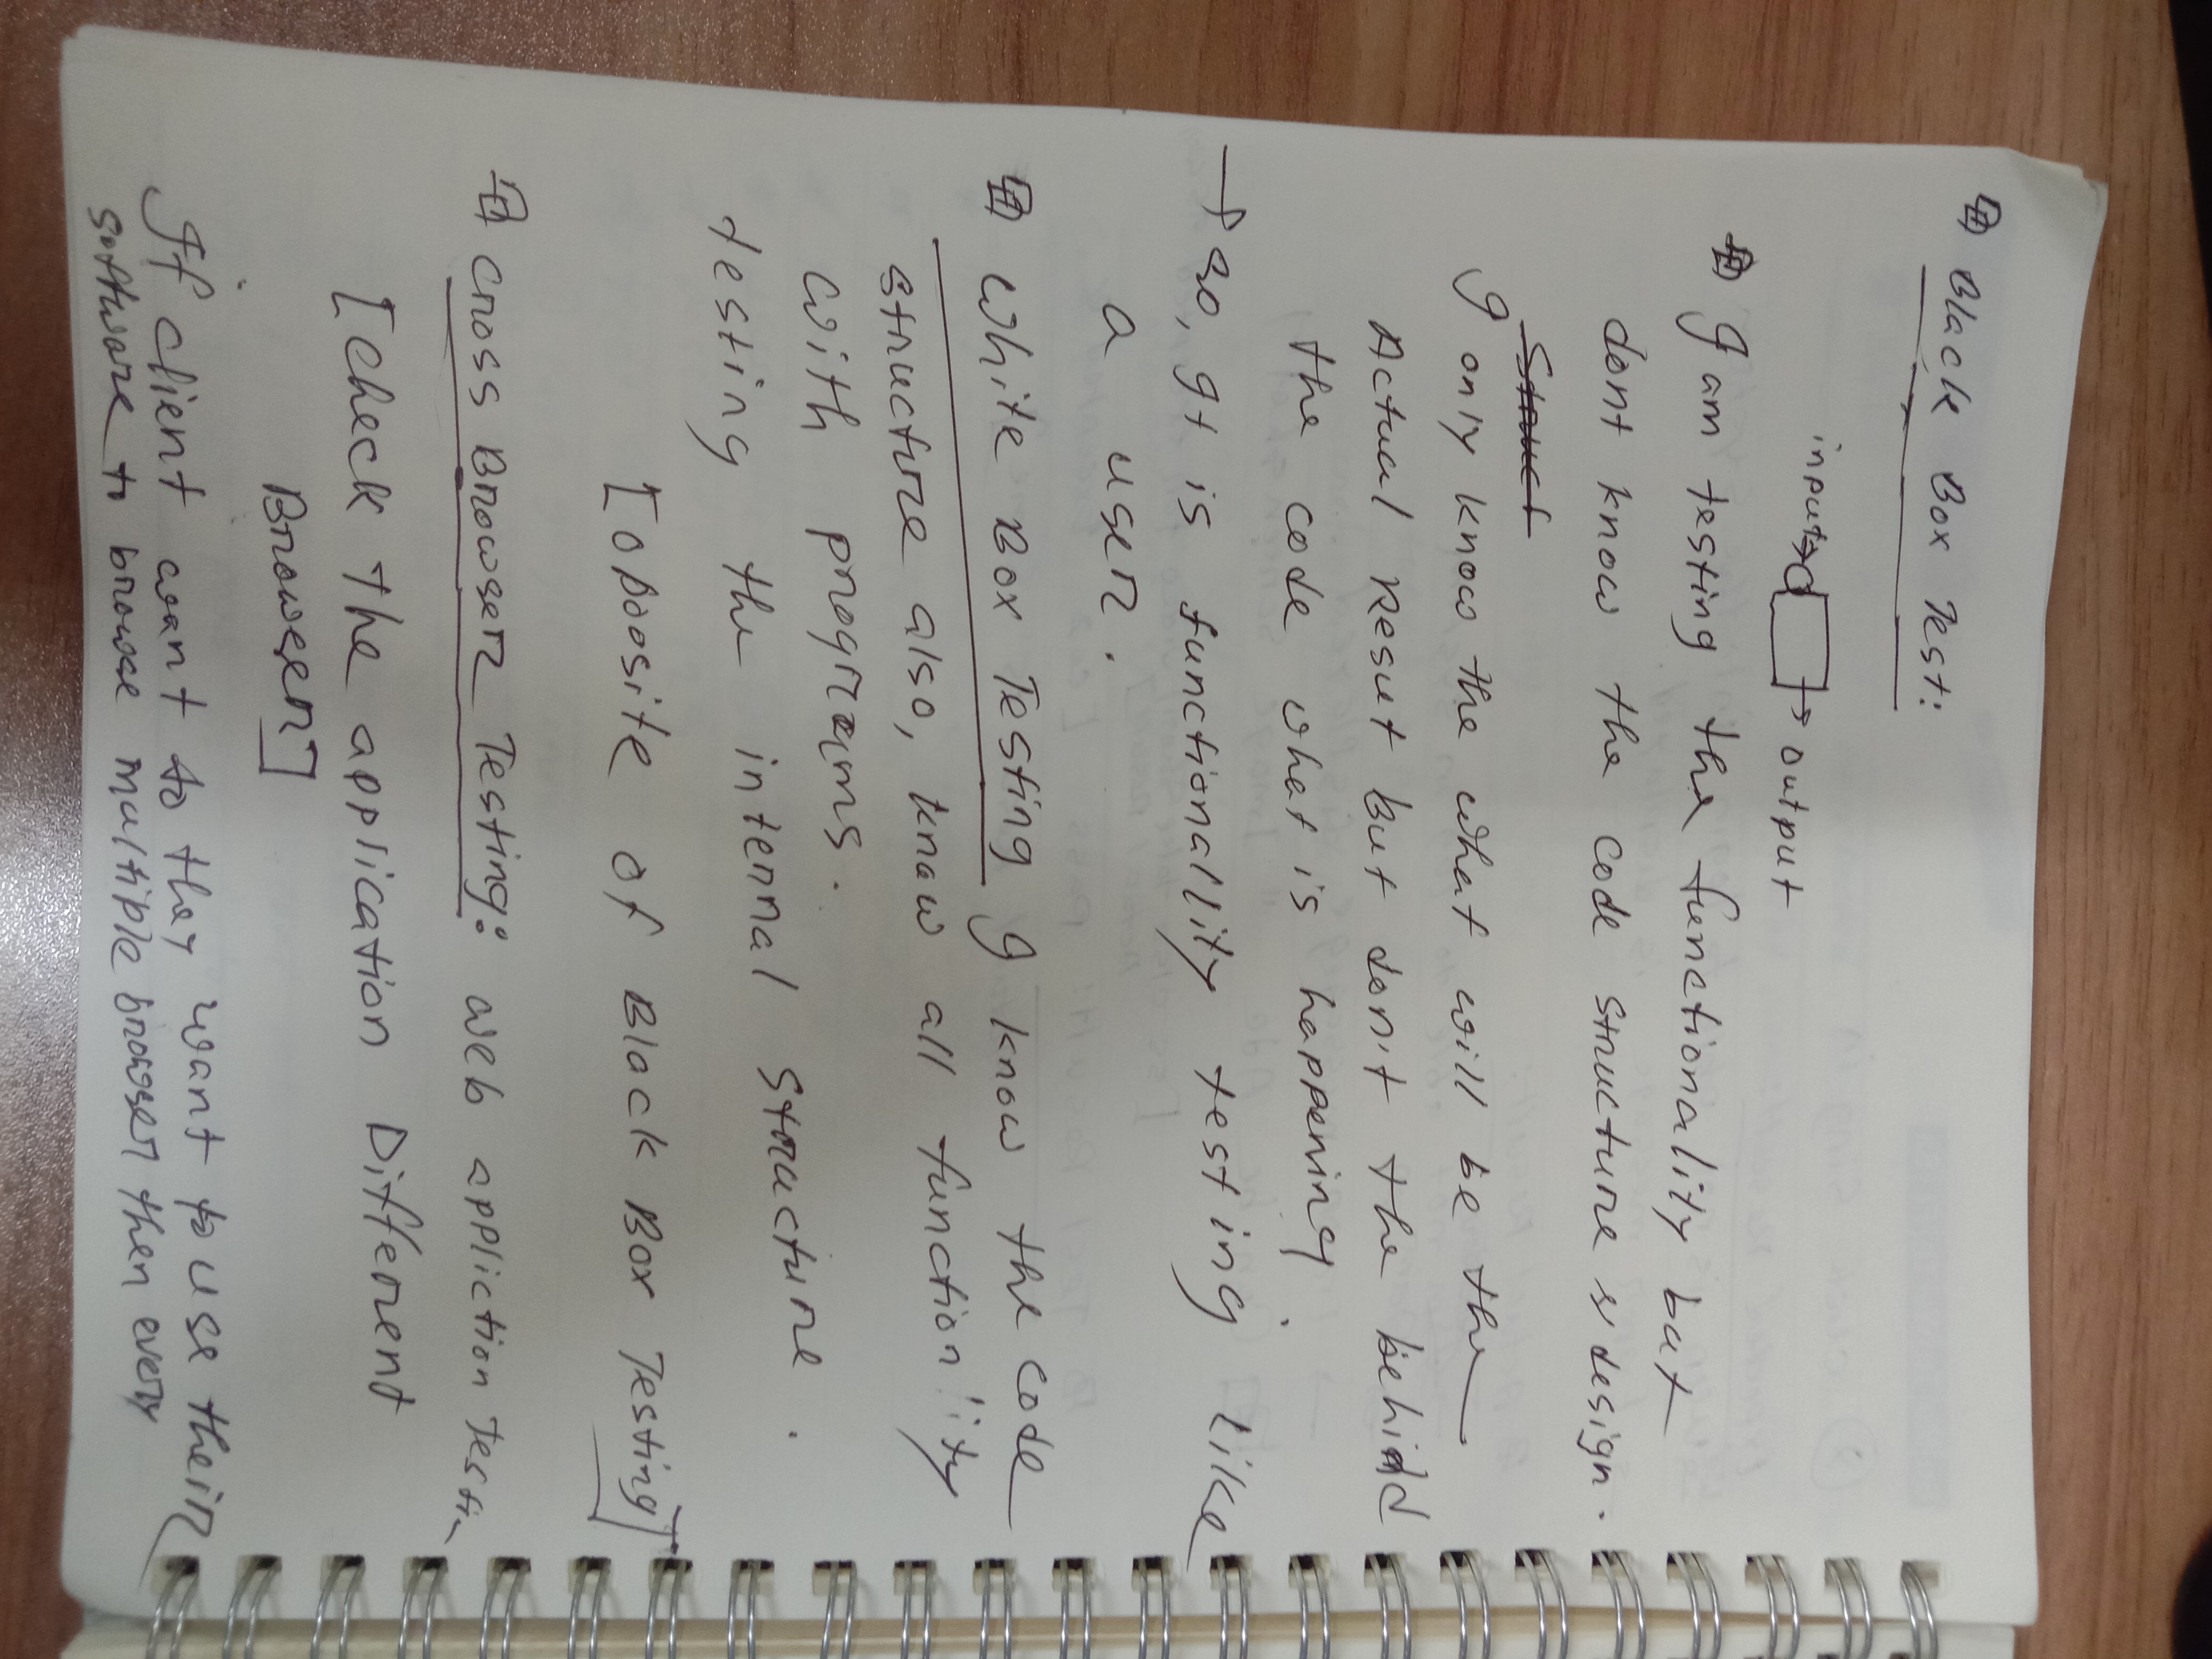 Black Box Test:
input → output
I am testing the functionality but
dont know the code structure & design.
Struct
I only know the what will be the
Actual Resut But don't the behind
the code what is happening.
→ so, It is functionallity testing like
a user.
White Box Testing I know the code
structure also, know all function'ity
with programs.
testing the internal structure.
[opposite of Black Box Testing]
Cross Browser Testing: web appliction Testin
[check the application Different
Browser]
If client want to they want to use their
software to browse multiple browser then every